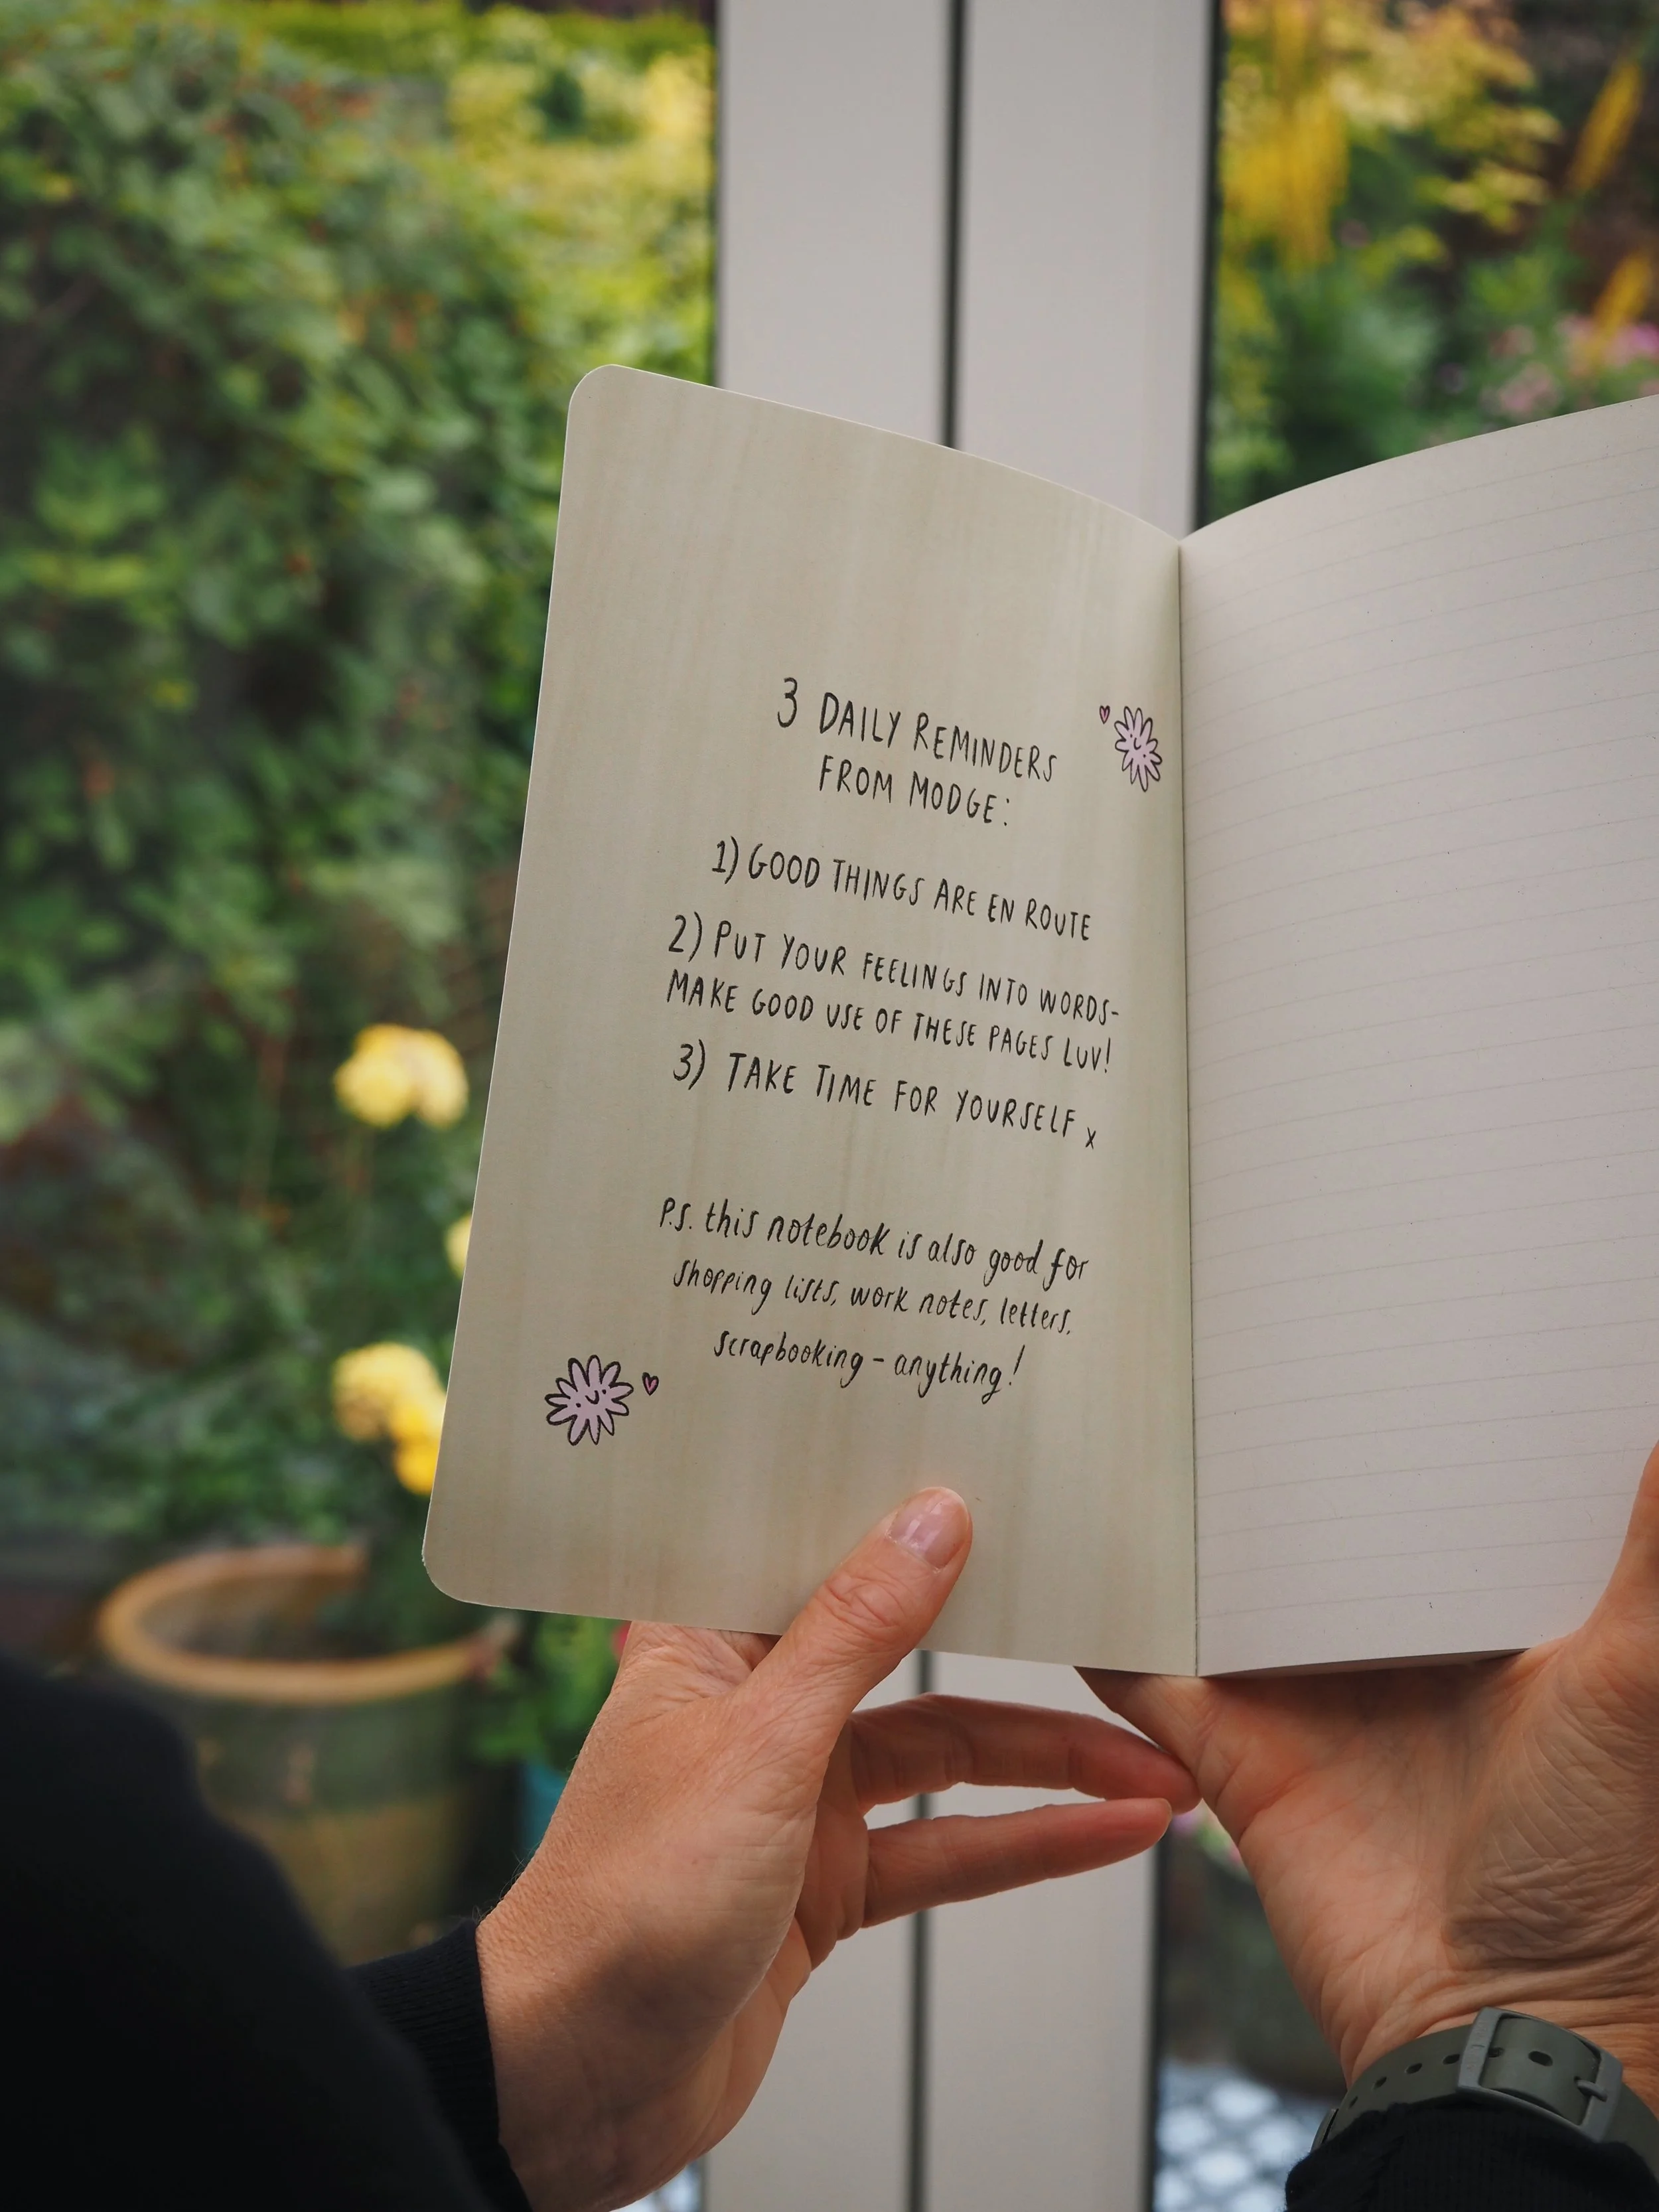 3 DAILY REMINDERS
FROM MODGE:
1) GOOD THINGS ARE EN ROUTE
2) PUT YOUR FEELINGS INTO WORDS-
MAKE GOOD USE OF THESE PAGES LUV!
3) TAKE TIME FOR YOURSELF x
P.S. this notebook is also good for
shopping lists, work notes, letters,
scrapbooking - anything!